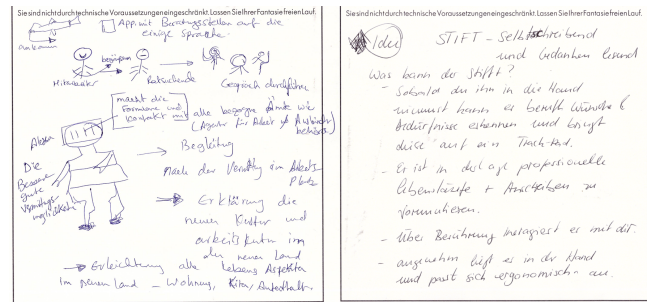 Sie sind nicht durch technische Voraussetzungen eingeschränkt. Lassen Sie Ihrer Fantasie freien Lauf.
App mit Beratungsstellen auf die
einige Sprache
ankommen
begrüßen
Mitarbeiter
Ratsuchende
Gespräch durchführen
macht die
Formulare und
Kontakt mit alle bezogen Ämte wie
(Agentur für Arbeit
Begleitung
nach der Vermittlung im Arbeits
Platz
Die
Bessere
gute
Erklärung die
neuen Kultur und
arbeitskultur im
den neuen Land
Erleichtung alle lebens Aspekten
Im neuen Land – Wohnung, Kita, Aufenthalt.
Sie sind nicht durch technische Voraussetzungen eingeschränkt. Lassen Sie Ihrer Fantasie freien Lauf.
Idee
STIFT – Selbstschreibend
und Gedanken lesend
Was kann der Stift?
- Sobald du ihn in die Hand
nimmst kann er beruft Wünsche &
Bedürfnisse erkennen und bringt
diese auf ein
- Er ist in der Lage professionelle
Lebensläufe + Anschreiben zu
formatieren.
- Über Berührung interagiert er mit dir.
- angenehm liegt er in der Hand
und passt sich ergonomisch an.